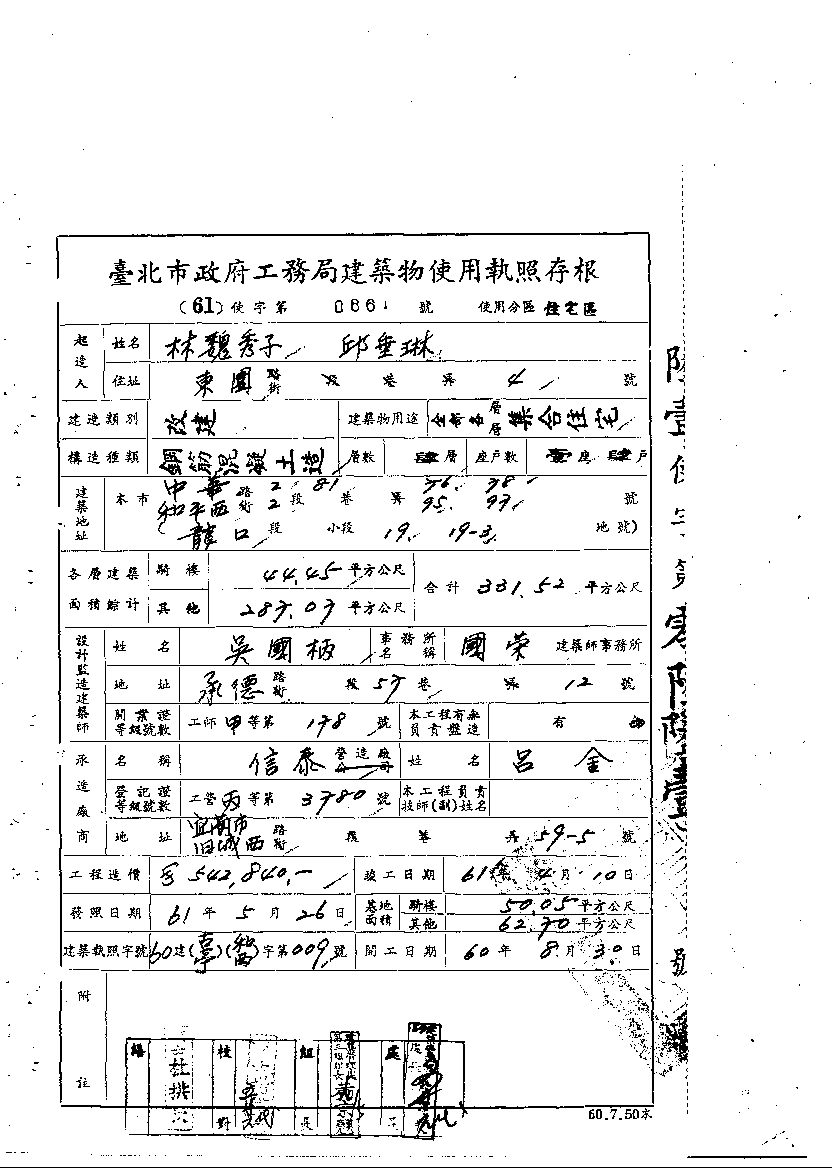 臺北市政府工務局建築物使用執照存根
(61)使字第 0661 號 使用分區 住宅區
起造人 姓名 林魏秀子 邱垂琳
住址 東園 路街 段 巷 弄 4 號
建造類別 改建 建築物用途 全部各層 集合住宅
構造種類 鋼筋混凝土造 層數 肆層 座戶數 壹座 肆戶
建築地址 本市 中華 路 2 81 76. 78.
和平西 街 2 段 巷 弄 95. 97. 號
(龍口 段 小段 19. 19-3. 地號)
各層建築面積總計 騎樓 44.45 平方公尺 合計 331.52 平方公尺
其他 287.07 平方公尺
設計監造建築師 姓名 吳國柄 事務所名稱 國榮 建築師事務所
地址 承德 路街 段 57 巷 弄 12 號
開業證等級號數 工師甲等第 178 號 本工程有無負責監造 有
承造廠商 名稱 信泰 營造廠公司 姓名 呂金
登記證等級號數 工營丙等第 3780 號 本工程負責技師(副)姓名
地址 宜蘭市旧城西 路街 段 巷 弄 59-5 號
工程造價 542,840.- 竣工日期 61年 4月 10日
發照日期 61年 5月 26日 基地面積 騎樓 50.05 平方公尺
其他 62.70 平方公尺
建築執照字號 60建( )( )字第009號 開工日期 60年 8月 30日
附註
校對 組長 處
60.7.50本
陸壹使字第零陸陸壹號